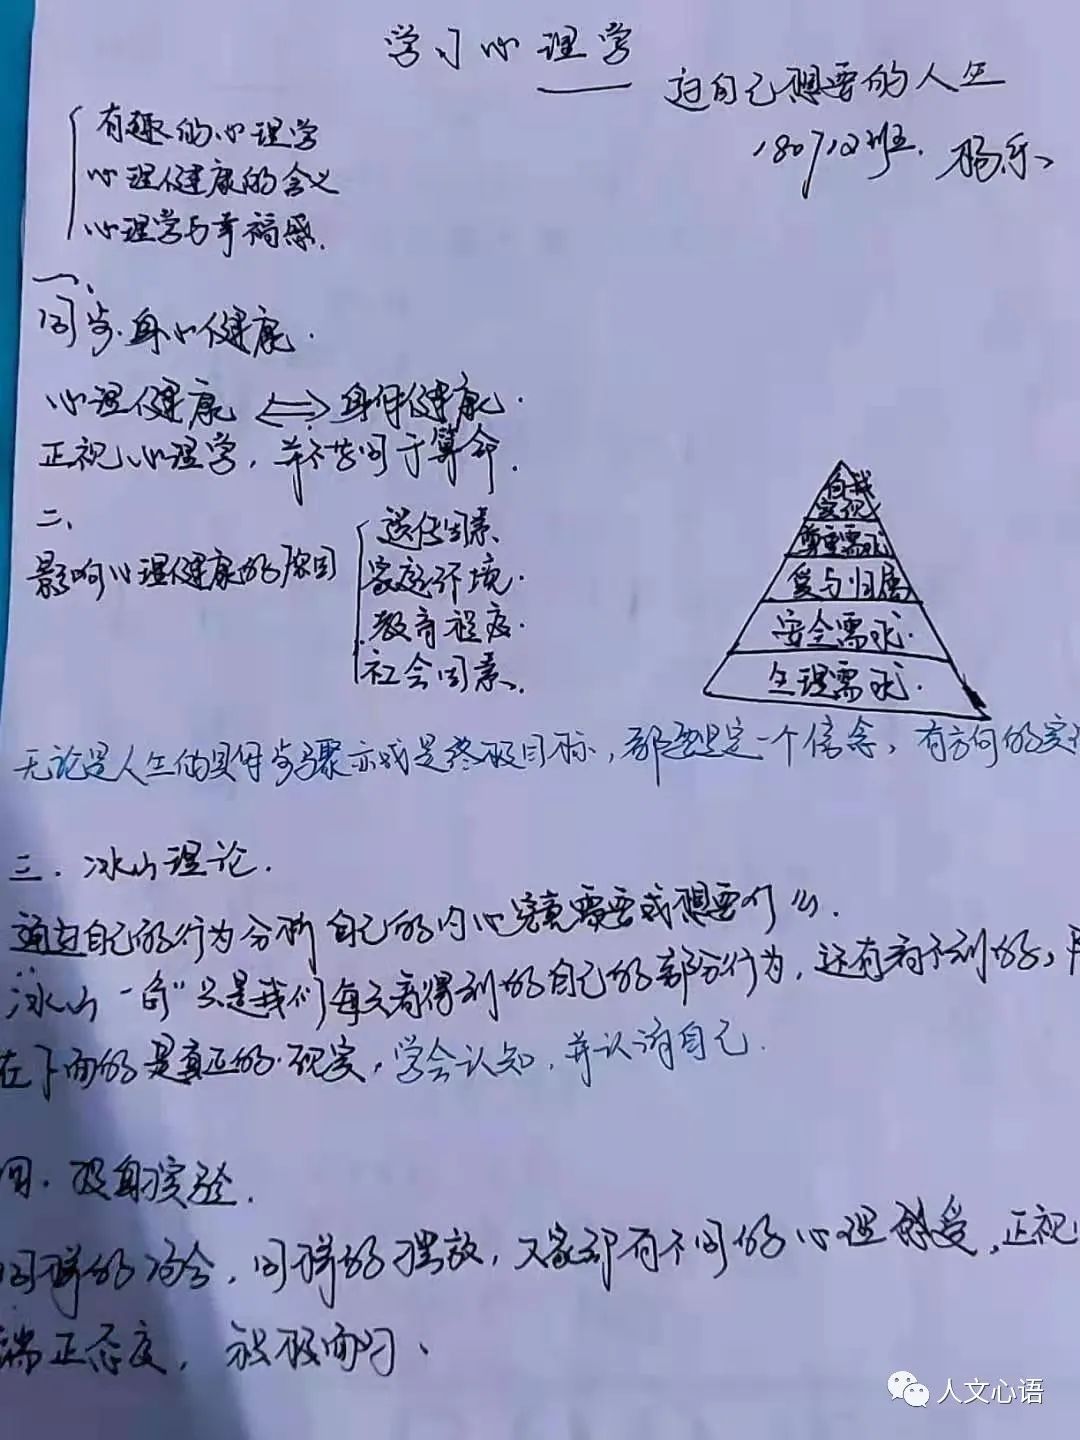 学习心理学
—— 过自己想要的人生
180712班 杨乐
有趣的心理学
心理健康的含义
心理学与幸福感.
一、
同步.身心健康.
心理健康 <=> 身体健康.
正视心理学,并不苟同于算命.
二、
影响心理健康的原因
遗传因素
家庭环境.
教育程度.
社会因素.
自我
实现
尊重需求
爱与归属
安全需求.
生理需求.
无论是人生的具体步骤亦或是终极目标,都要坚定一个信念,有方向的实
三.冰山理论.
通过自己的行为分析自己的内心究竟需要或想要什么.
冰山一角"只是我们每天看得到的自己的部分行为,还有看不到的,
在下面的是真正的现实,学会认知,并认清自己.
四.实验.
同样的场合,同样的摆放,大家却有不同的心理感受,正视
端正态度,积极面对、
人文心语